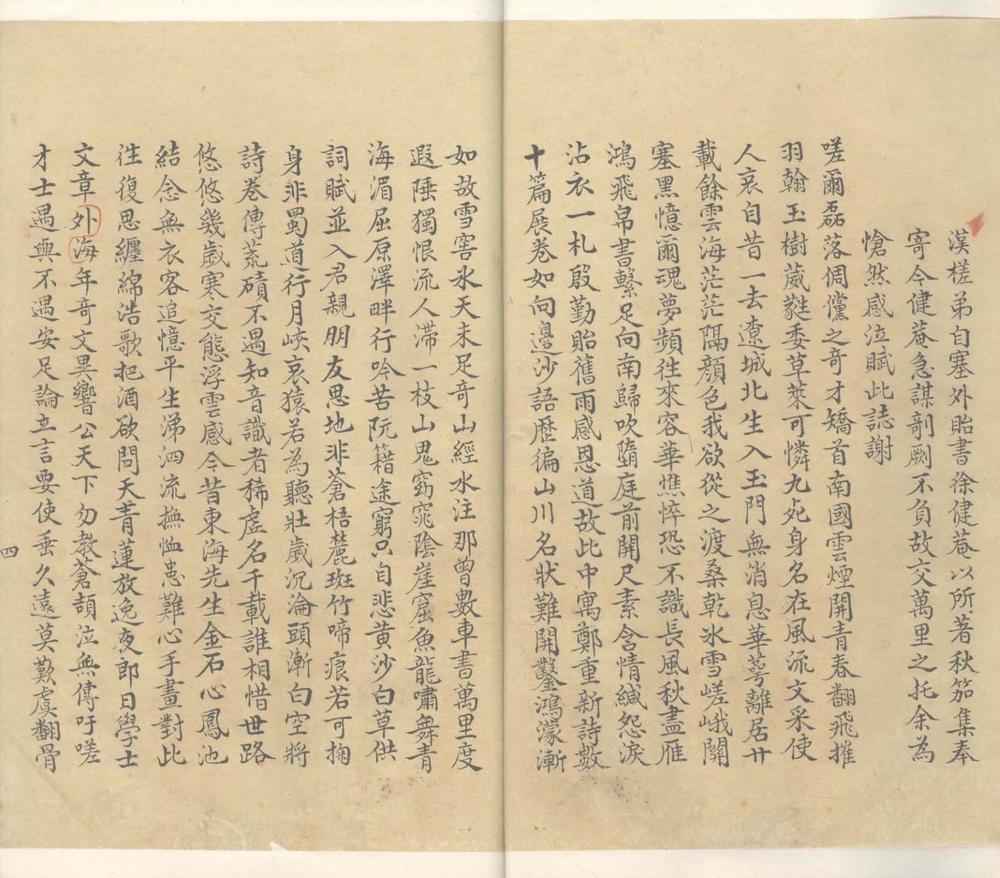 漢槎弟自塞外貽書徐健菴以所著秋笳集奉
寄今健菴急謀剞劂不負故交萬里之托余為
愴然感泣賦此誌謝
嗟爾磊落倜儻之奇才矯首南國雲煙開青春翻飛摧
羽翰玉樹葳蕤委草萊可憐九死身名在風流文采使
人哀自昔一去遼城北生入玉門無消息華萼離居廿
載餘雲海茫茫隔顔色我欲從之渡桑乾氷雪嵯峨關
塞黑憶爾魂夢頻往來容華憔悴恐不識長風秋盡雁
鴻飛帛書繫足向南歸吹墮庭前開尺素含情緘怨淚
沾衣一札殷勤貽舊雨感恩道故此中寓鄭重新詩數
十篇展卷如向邊沙語歷徧山川名狀難開鑿鴻濛漸
如故雪窖氷天未足奇山經水注那曾數車書萬里度
遐陲獨恨流人滯一枝山鬼窈窕陰崖窟魚龍嘯舞青
海湄屈原澤畔行吟苦阮籍途窮只自悲黄沙白草供
詞賦並入君親朋友思地非蒼梧麓斑竹啼痕若可掬
身非蜀道行月峽哀猿若為聽壯歲沉淪頭漸白空將
詩卷傳荒磧不遇知音識者稀虛名千載誰相惜世路
悠悠幾歲寒交態浮雲感今昔東海先生金石心鳳池
結念無衣客追憶平生涕泗流撫恤患難心手畫對此
徃復思纏綿浩歌把酒欲問天青蓮放逸夜郎日學士
文章外海年奇文異響公天下勿教蒼頡泣無傳吁嗟
才士遇與不遇安足論立言要使垂久遠莫歎虞翻骨
四